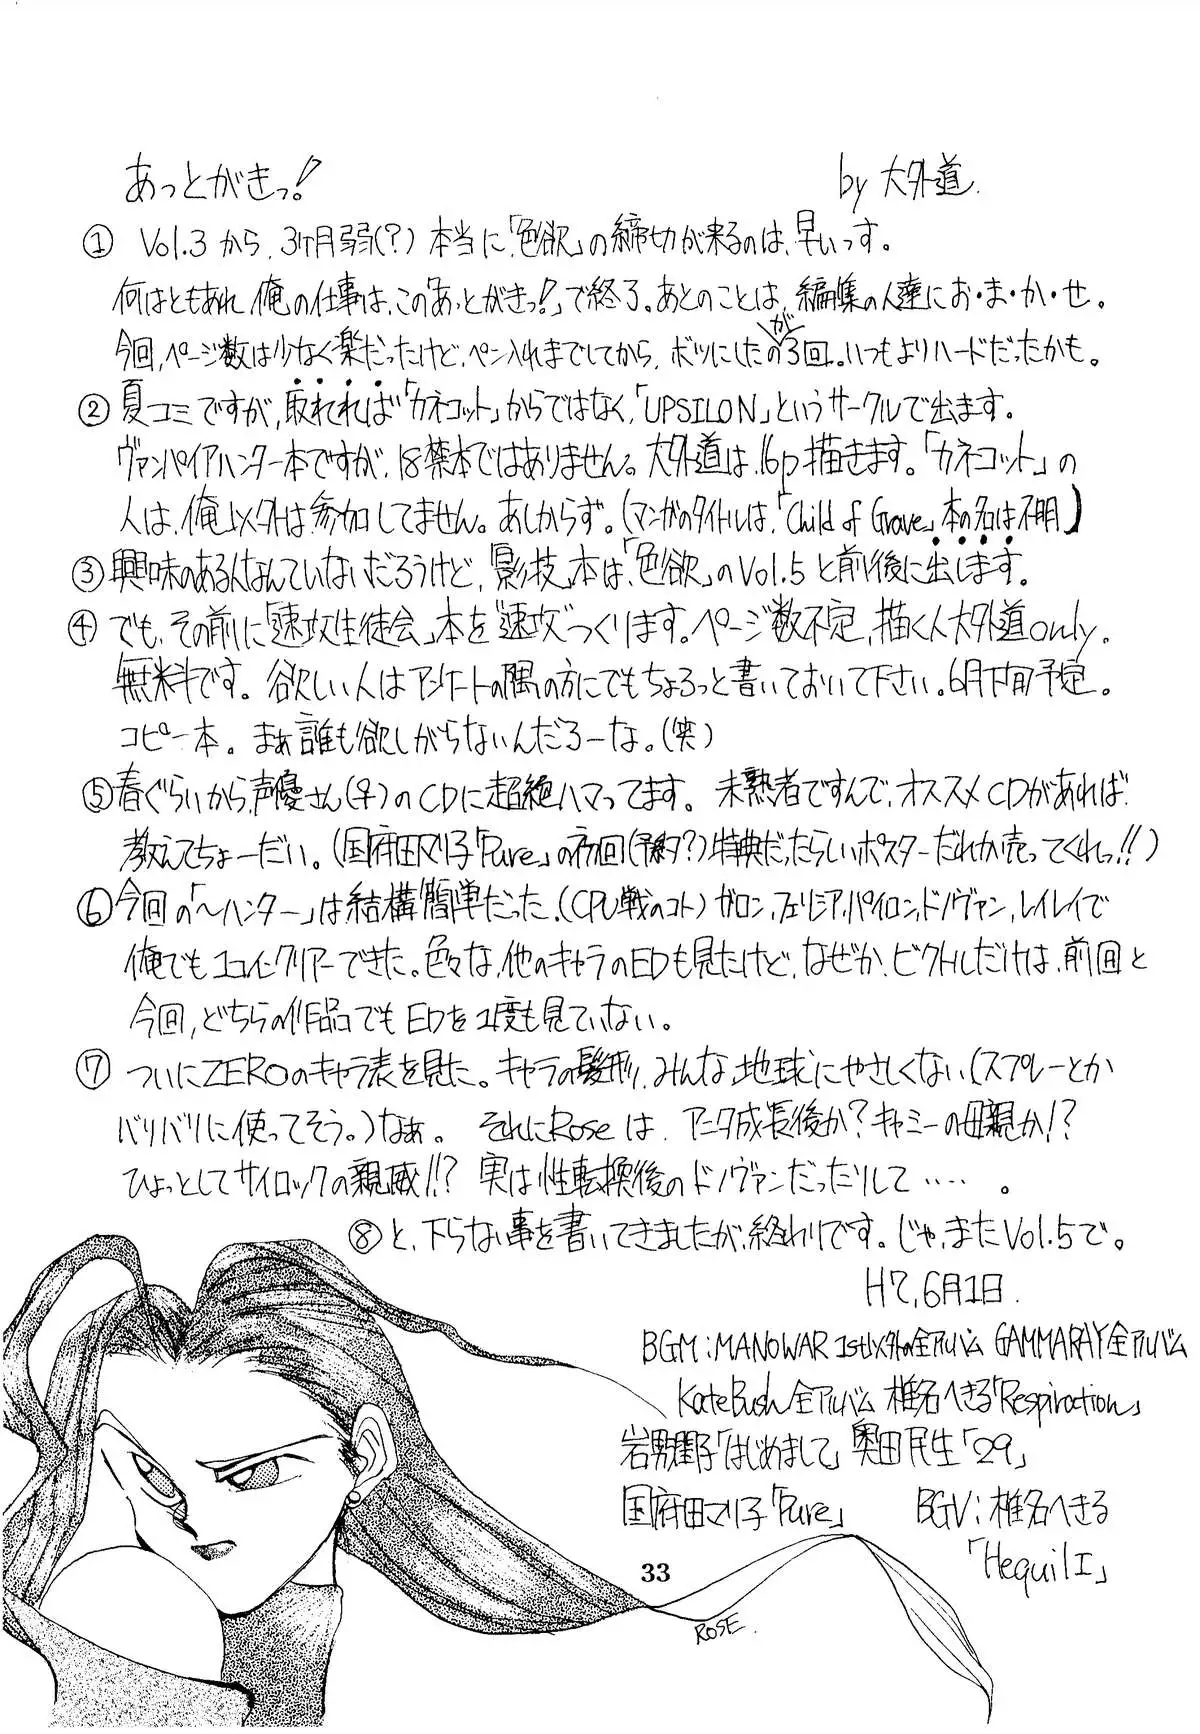 あっとがきっ! by 大外道.
① Vol.3 から、3ヶ月弱(?) 本当に「色欲」の締切が来るのは、早いっす。
何はともあれ、俺の仕事は、この「あっとがきっ!」で終了。あとのことは、編集の人達にお・ま・か・せ。
今回、ページ数は少なく楽だったけど、ペン入れまでしてから、ボツにしたのが3回。いつもよりハードだったかも。
② 夏コミですが、取れれば「カネコット」からではなく、「UPSILON」というサークルで出ます。
ヴァンパイアハンター本ですが、18禁本ではありません。大外道は、16p描きます。「カネコット」の
人は、俺以外は参加してません。あしからず。(マンガのタイトルは、「Child of Grave」、本の名は不明)
③ 興味のある人なんていないだろうけど、「影技」本は、「色欲」のVol.5と前後に出します。
④ でも、その前に「速攻生徒会」本を“速攻”つくります。ページ数不定、描く人大外道only.
無料です。欲しい人はアンケートの隅の方にでもちょろっと書いておいて下さい。6月下旬予定。
コピー本。まぁ誰も欲しがらないんだろーな。(笑)
⑤ 春ぐらいから、声優さん(♀)のCDに超絶ハマってます。未熟者ですんで、オススメCDがあれば、
教えてちょーだい。(国府田マリ子「Pure」の初回(予約?)特典だったらしいポスターだれか売ってくれっ!!)
⑥ 今回の「〜ハンター」は結構簡単だった、(CPU戦のコト)ガロン,フェリシア,パイロン,ドノヴァン,レイレイで
俺でも1コインクリアーできた。色々な、他のキャラのEDも見たけど、なぜか、ビクトルだけは、前回と
今回、どちらの作品でもEDを1度も見ていない。
⑦ ついにZEROのキャラ表を見た。キャラの髪形、みんな、地球にやさしくない(スプレーとか
バリバリに使ってそう。)なぁ。それにRoseは、アニタ成長後か?キャミーの母親か!?
ひょっとしてサイロックの親戚!!?実は性転換後のドノヴァンだったりして‥‥‥。
⑧ と、下らない事を書いてきましたが、終わりです。じゃ、またVol.5で。
H7、6月1日.
BGM:MANOWAR 1st以外の全アルバム GAMMARAY全アルバム
Kate Bush全アルバム 椎名へきる「Respiraction」
岩男潤子「はじめまして」 奥田民生「29」
国府田マリ子「Pure」 BGV:椎名へきる
「HequilI」
33
ROSE.